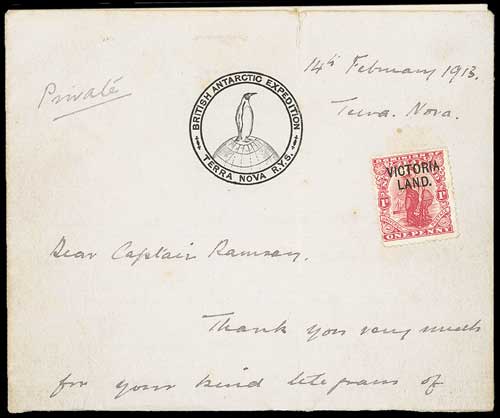 14th February 1913.
Private
Terra. Nova.
BRITISH ANTARCTIC EXPEDITION
TERRA NOVA R.Y.S.
VICTORIA
LAND.
1D
1D
ONE PENNY
Dear Captain Ramsay.
Thank you very much
for your kind telegram of